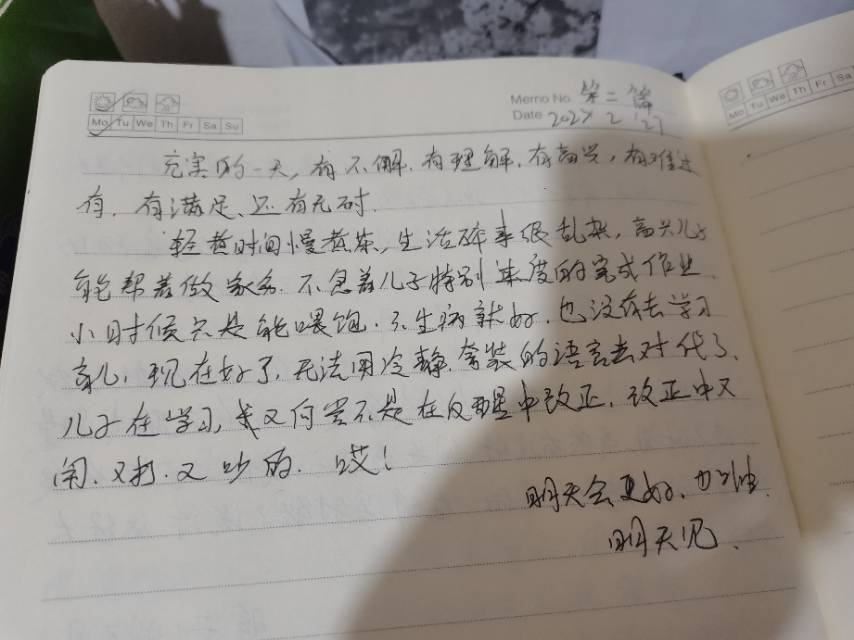 Memo No. 第二篇
Mo Tu We Th Fr Sa Su
Date 2 27
Th Fr Sa
充实的一天,有不解.有理解.有高兴,有难过
有.有满足、还有无耐.
时间慢煮茶,生活碎事很乱杂,高兴儿子
能帮着做家务.不急着儿子特别 速度的完成作业
小时候只是能喂饱.不生病就好.也没有去学习
育儿,现在好了,无法用冷静.套装的语言去对代了、
儿子在学习,我又何尝不是在反醒中改正.改正中又
闹.又打.又吵的.哎!
明天会更好、加油.
明天见、